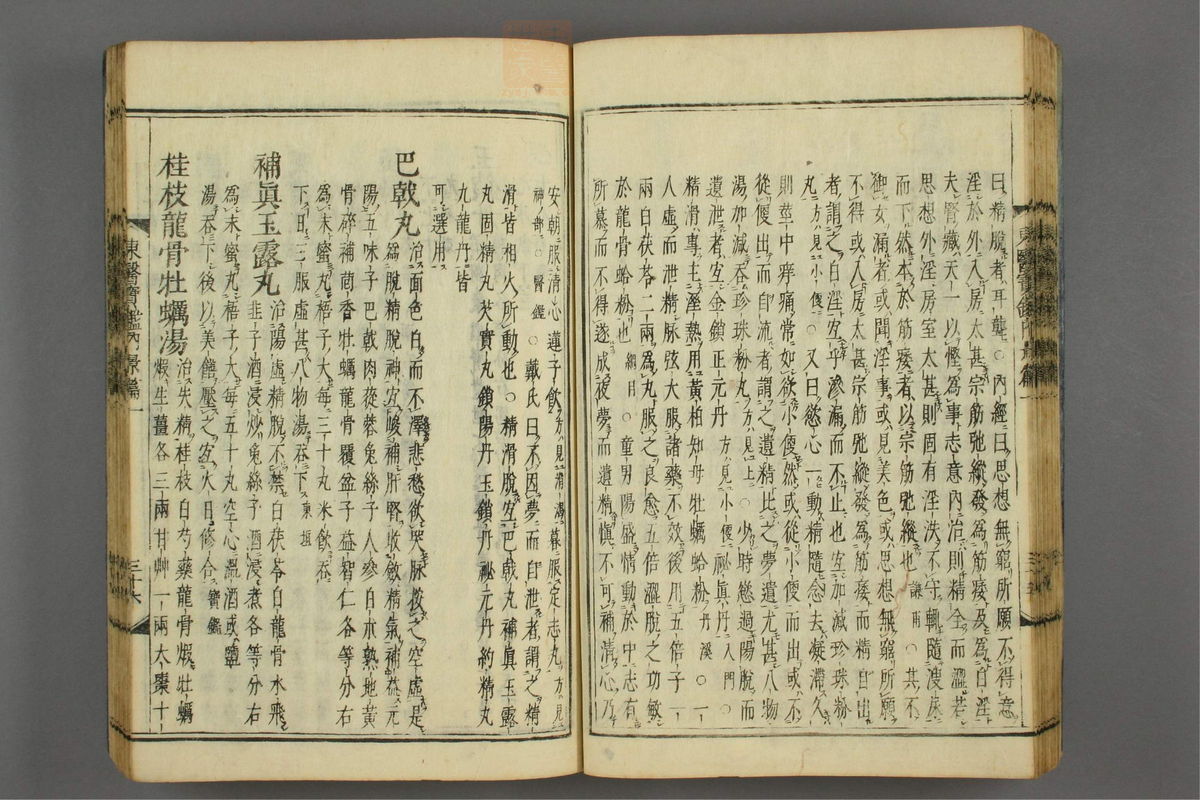 曰精脫者耳聾○內經曰思想無窮所願不得意
淫於外入房太甚宗筋弛縱發為筋痿及為白淫
夫腎藏天一以慳為事志意內治則精全而澁若
思想外淫房室太甚則固有淫泆不守輒隨溲尿
而下然本於筋痿者以宗筋弛縱也謙甫○其不
御女漏者或聞淫事或見美色或思想無窮所願
不得或入房太甚宗筋弛縱發為筋痿而精自出
者謂之白淫宜乎滲漏而不止也宜加減珍珠粉
丸方見小便○又曰慾心一動精隨念去凝滯久
則莖中痒痛常如欲小便然或從小便而出或不
從便出而自流者謂之遺精比之夢遺尤甚八物
湯加減吞珍珠粉丸方見上○少時慾過陽脫而
遺泄者宜金鎖正元丹方見小便祕眞丹入門○
精滑專主濕熱用黃柏知母牡蠣蛤粉丹溪○一
人虛而泄精脉弦大服諸藥不效後用五倍子一
兩白茯苓二兩為丸服之良愈五倍澀脫之功敏
於龍骨蛤粉也綱目○童男陽盛情動於中志有
所慕而不得遂成夜夢而遺精愼不可補清心乃
安朝服清心蓮子飲方見消渴暮服定志丸方見
神部○醫鑑○戴氏曰不因夢而自泄者謂之精
滑皆相火所動也○精滑脫宜巴戟丸補眞玉露
丸固精丸芡實丸鎖陽丹玉鎖丹祕元丹約精丸
九龍丹皆
可選用
巴戟丸治面色白而不澤悲愁欲哭脉按之空虛是
為脫精脫神宜峻補肝腎收斂精氣補益元
陽五味子巴戟肉蓯蓉兔絲子人參白朮熟地黃
骨碎補茴香牡蠣龍骨覆盆子益智仁各等分右
為末蜜丸梧子大每三十丸米飲吞
下日二三服虛甚八物湯吞下東垣
補眞玉露丸治陽虛精脫不禁白茯苓白龍骨水飛
韭子酒浸炒兔絲子酒浸煮各等分右
為末蜜丸梧子大每五十丸空心溫酒或鹽
湯吞下後以美饍壓之宜火日修合寶鑑
桂枝龍骨牡蠣湯治失精桂枝白芍藥龍骨煆牡蠣
煆生薑各三兩甘艸一兩大棗十
東醫寶鑑內景篇一
三十六